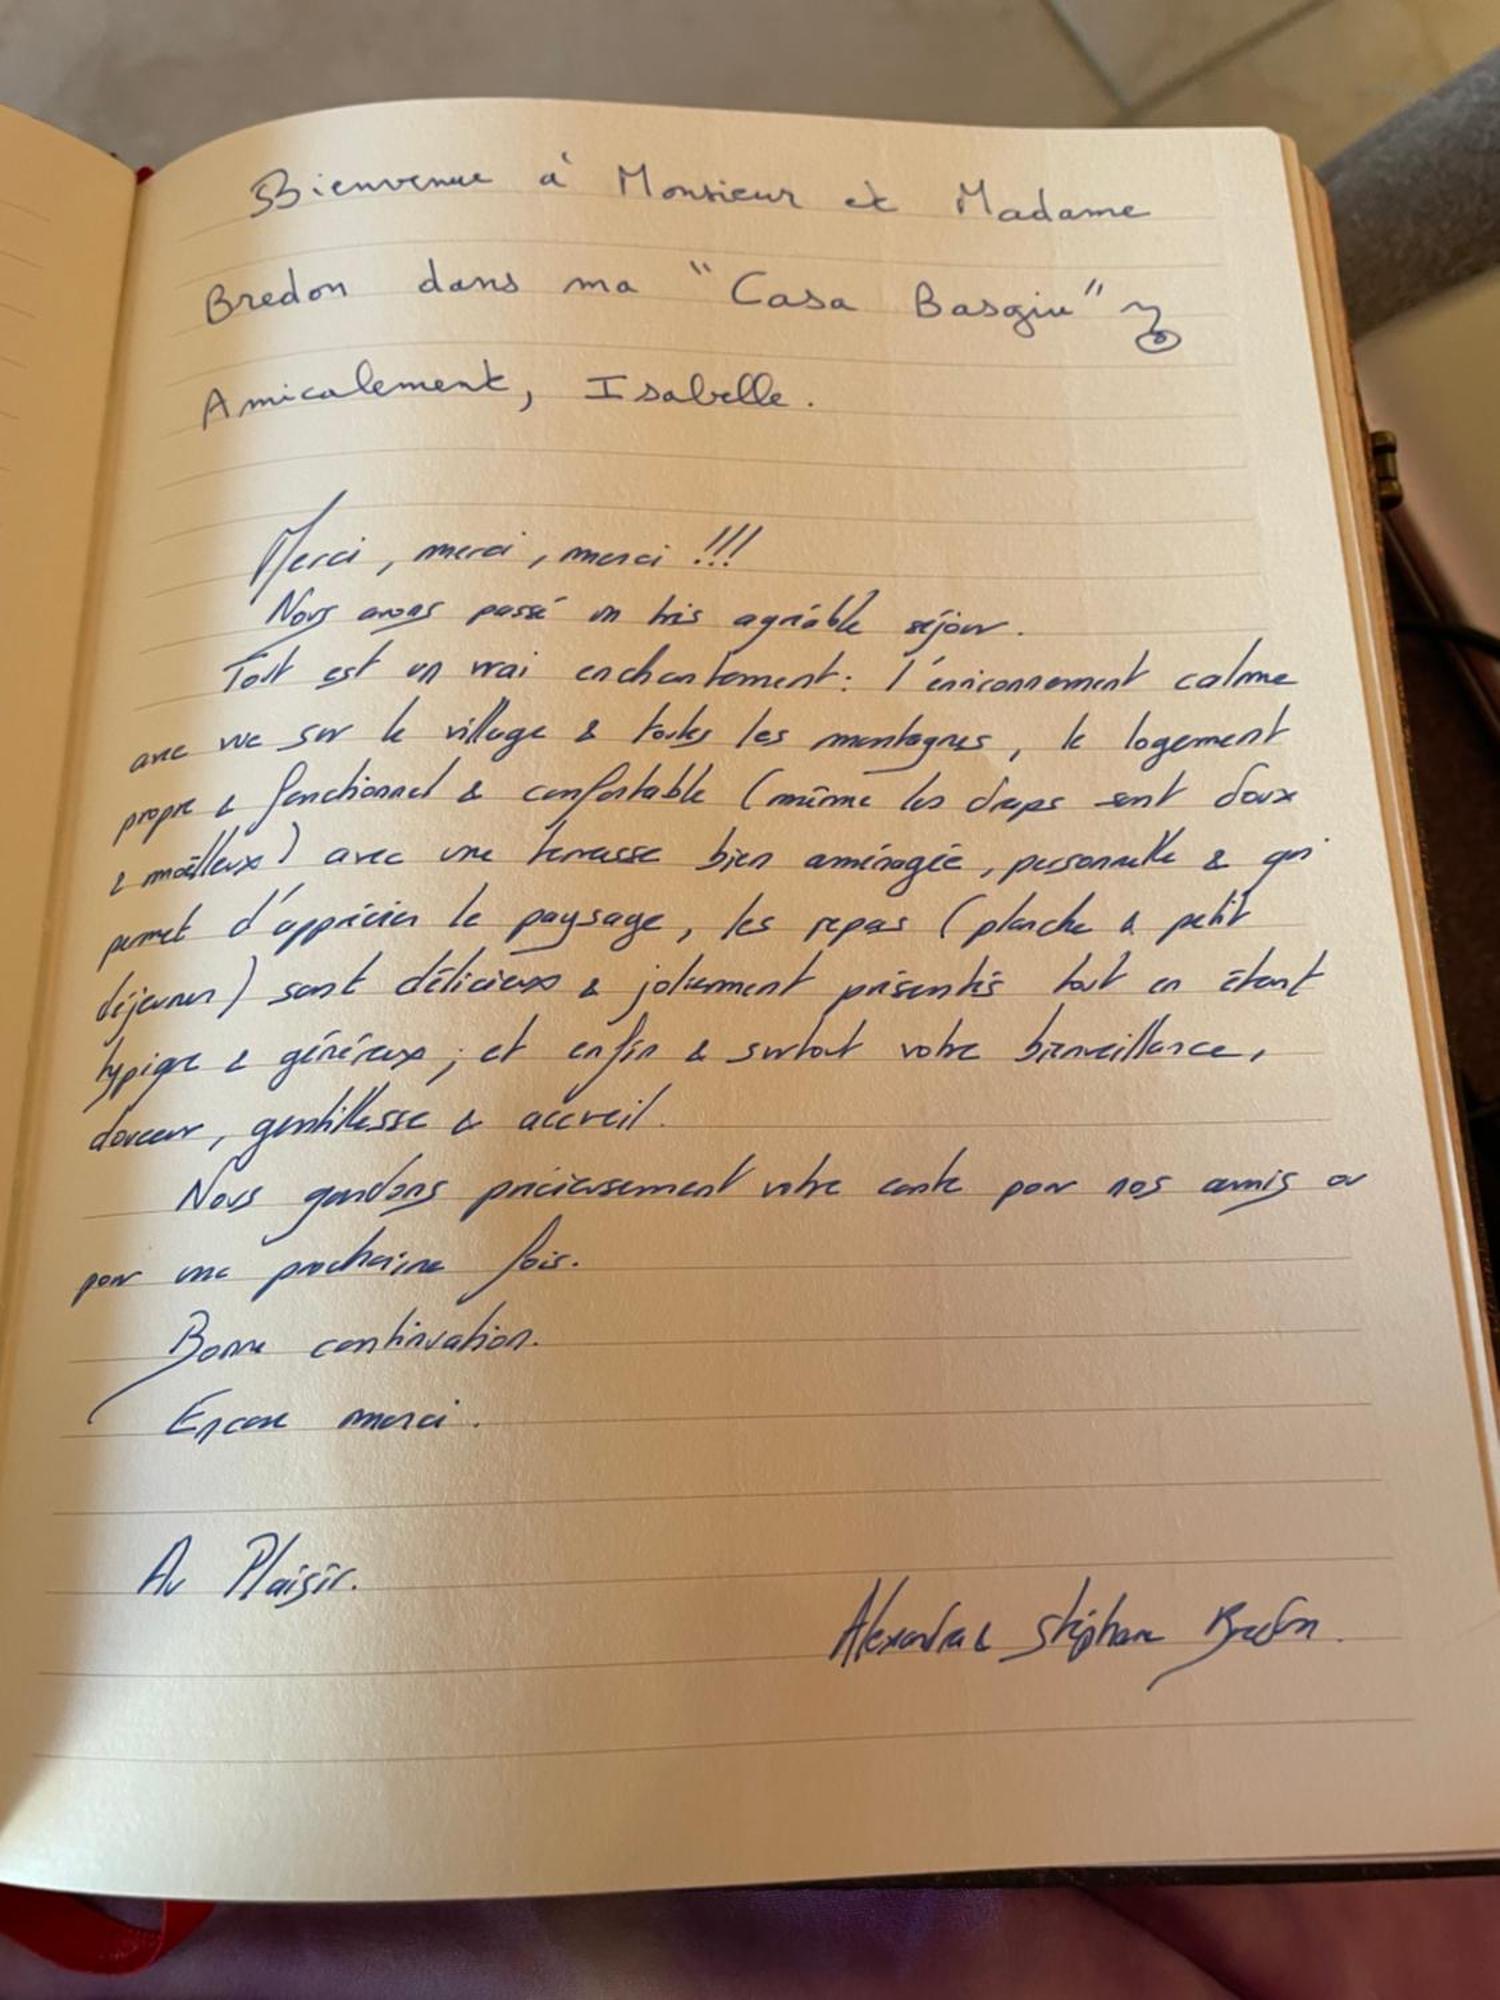 Bienvenue à Monsieur et Madame
Bredon dans ma "Casa Basgiu"
Amicalement, Isabelle.
Merci, merci, merci !!!
Nous avons passé un très agréable séjour.
Tout est un vrai enchantement : l'environnement calme
avec vue sur le village & toutes les montagnes, le logement
propre & fonctionnel & confortable (même les draps sont doux
& moëlleux) avec une terrasse bien aménagée, personnelle & qui
permet d'apprécier le paysage, les repas (planche & petit
déjeuner) sont délicieux & joliement présentés tout en étant
typique & généreux ; et enfin & surtout votre bienveillance,
douceur, gentillesse & accueil.
Nous gardons précieusement votre carte pour nos amis ou
pour une prochaine fois.
Bonne continuation.
Encore merci.
Au Plaisir.
Alexandra & Stéphane Bredon.